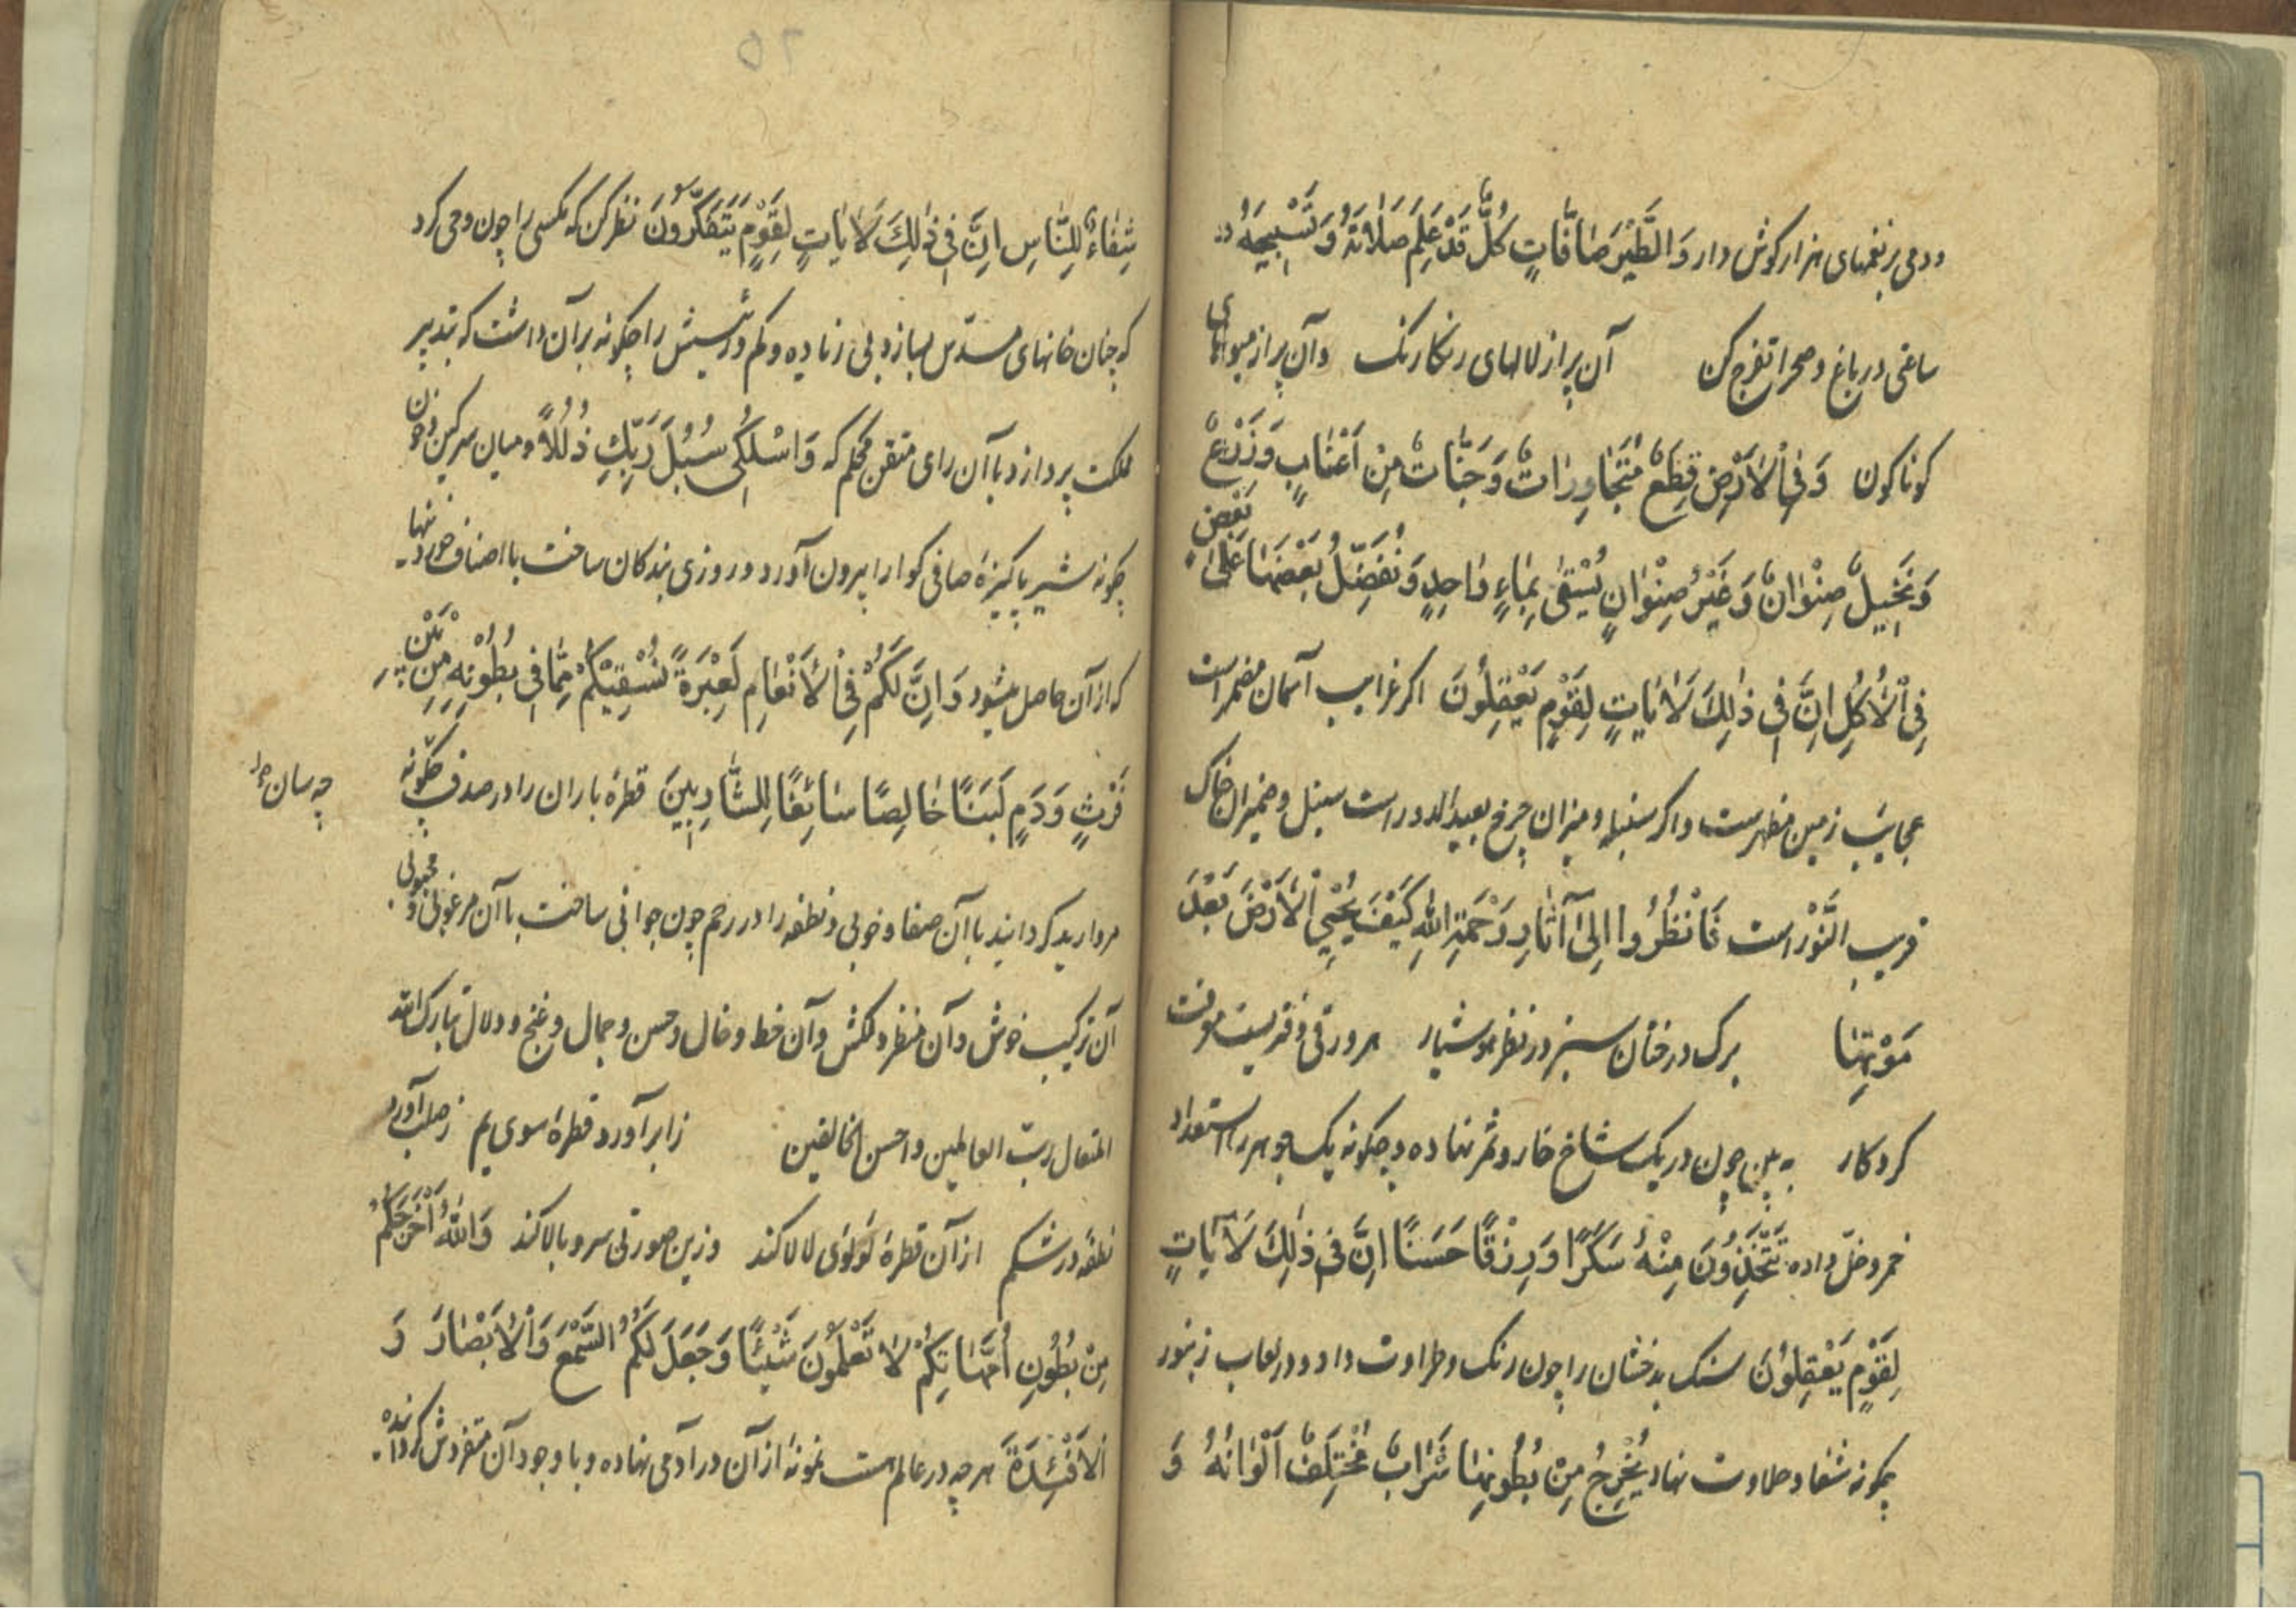 ودمی بر نغمهای هزار کوش دار وَالطَّیْرَ صَافَّاتٍ کُلٌّ قَدْ عَلِمَ صَلَاتَهُ وَتَسْبِیحَهُ
ساعتی در باغ و صحرا تفرج کن آن پر از لالهای رنکارنک وآن پر از میوهای
کوناکون وَفِی الْاَرْضِ قِطَعٌ مُتَجَاوِرَاتٌ وَجَنَّاتٌ مِنْ اَعْنَابٍ وَزَرْعٌ
وَنَخِیلٌ صِنْوَانٌ وَغَیْرُ صِنْوَانٍ یُسْقٰی بِمَاءٍ وَاحِدٍ وَنُفَضِّلُ بَعْضَهَا عَلٰی بَعْضٍ
فِی الْاُکُلِ اِنَّ فِی ذٰلِکَ لَاٰیَاتٍ لِقَوْمٍ یَعْقِلُونَ اکر غرایب آسمان مضمر است
عجایب زمین مظهرست واکر سنبله و میزان چرخ بعید الدور است سنبل و ضمیران خاک
قریب النَّوْر است فَانْظُرُوا اِلٰی آثَارِ رَحْمَةِ اللهِ کَیْفَ یُحْیِی الْاَرْضَ بَعْدَ
مَوْتِهَا برک درختان سبز در نظر هوشیار هر ورقی دفتریست معرفت
کردکار به بین چون در یک شاخ خار و ثمر نهاده و چکونه یک جوهر را استعداد
خمر و خلّ داده تَتَّخِذُونَ مِنْهُ سَکَرًا وَرِزْقًا حَسَنًا اِنَّ فِی ذٰلِکَ لَآیَاتٍ
لِقَوْمٍ یَعْقِلُونَ سنک بدخشان را چون رنک و طراوت داد و در لعاب زنبور
چکونه شفا و حلاوت نهاد یَخْرُجُ مِنْ بُطُونِهَا شَرَابٌ مُخْتَلِفٌ اَلْوَانُهُ وَ
شِفَاءٌ لِلنَّاسِ اِنَّ فِی ذٰلِکَ لَاٰیَاتٍ لِقَوْمٍ یَتَفَکَّرُونَ نظر کن که مکسی را چون وحی کرد
که چنان خانهای مسدّس بسازد بی زیاده و کم و رئیسش را چکونه بر آن داشت که بتدبیر
ملکت پردازد با آن رای متقن محکم که وَاسْلُکِی سُبُلَ رَبِّکِ ذُلُلًا و میان سرکین و خون
چکونه شیر پاکیزهٔ صافی کوارا بیرون آورد و روزی بندکان ساخت با اصناف خوردنیها
که از آن حاصل میشود وَاِنَّ لَکُمْ فِی الْاَنْعَامِ لَعِبْرَةً نُسْقِیکُمْ مِمَّا فِی بُطُونِهِ مِنْ بَیْنِ
فَرْثٍ وَدَمٍ لَبَنًا خَالِصًا سَائِغًا لِلشَّارِبِینَ قطرهٔ باران را در صدف چکونه
چه سان
مروارید کردانید با آن صفا و خوبی و نطفه را در رحم چون جوانی ساخت با آن مرغوبی و محبوبی
آن ترکیب خوش وآن منظر دلکش وآن خط و خال و حسن و جمال و غنج و دلال تبارک الله
المتعال رب العالمین واحسن الخالقین زابر آورد قطرهٔ سوی یم زصلب آورد
نطفه در شکم از آن قطرهٔ لؤلؤی لالا کند وزین صورتی سرو بالا کند وَاللهُ اَخْرَجَکُمْ
مِنْ بُطُونِ اُمَّهَاتِکُمْ لَا تَعْلَمُونَ شَیْئًا وَجَعَلَ لَکُمُ السَّمْعَ وَالْاَبْصَارَ وَ
الْاَفْئِدَةَ هر چه در عالم هست نمونهٔ از آن در آدمی نهاده و با وجود آن متفردش کردانیده